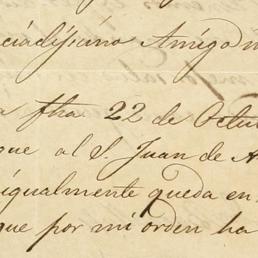 Amigo
a fha 22 de Octu
que al S. Juan de A
igualmente queda en
que por mi orden ha